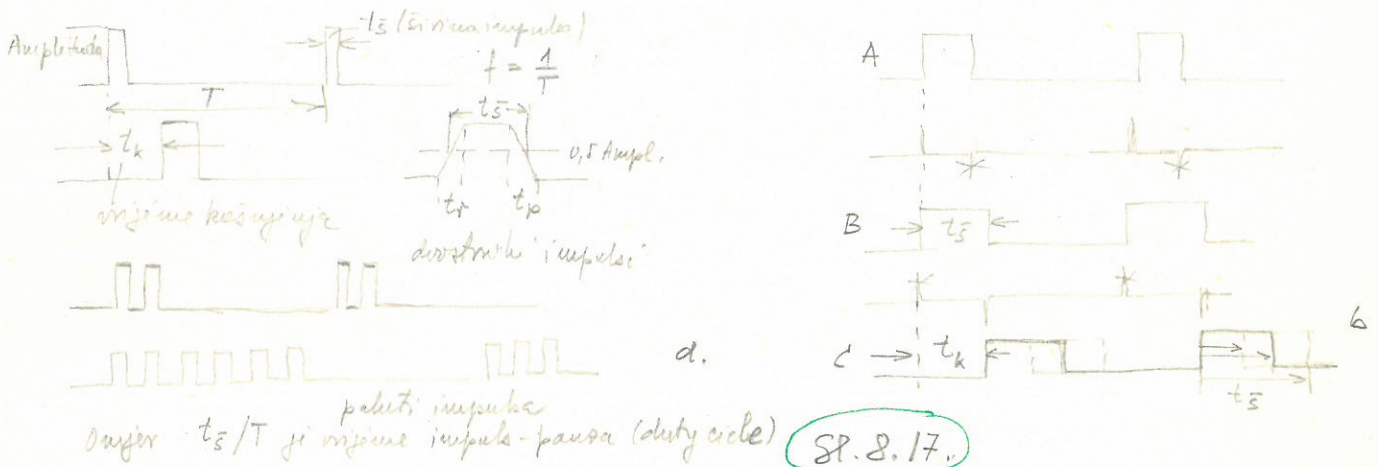 Amplituda
tš (širina impulsa)
f = 1/T
T
tš
tk
0,5 Ampl.
tr tp
vrijeme kašnjenja
dvostruki impulsi
a.
paketi impulsa
Omjer tš/T je vrijeme impuls-pauza (duty cicle)
Sl. 8.17.
A
B tš
C tk
b
tš